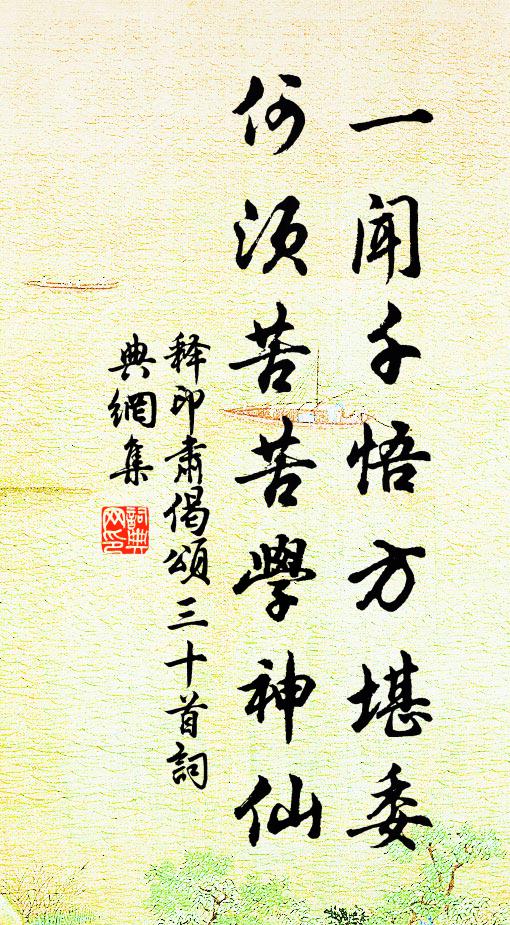 一闻千悟方堪委
何须苦苦學神仙
释印肃偈颂三十首詞
典網集
詞典
网印